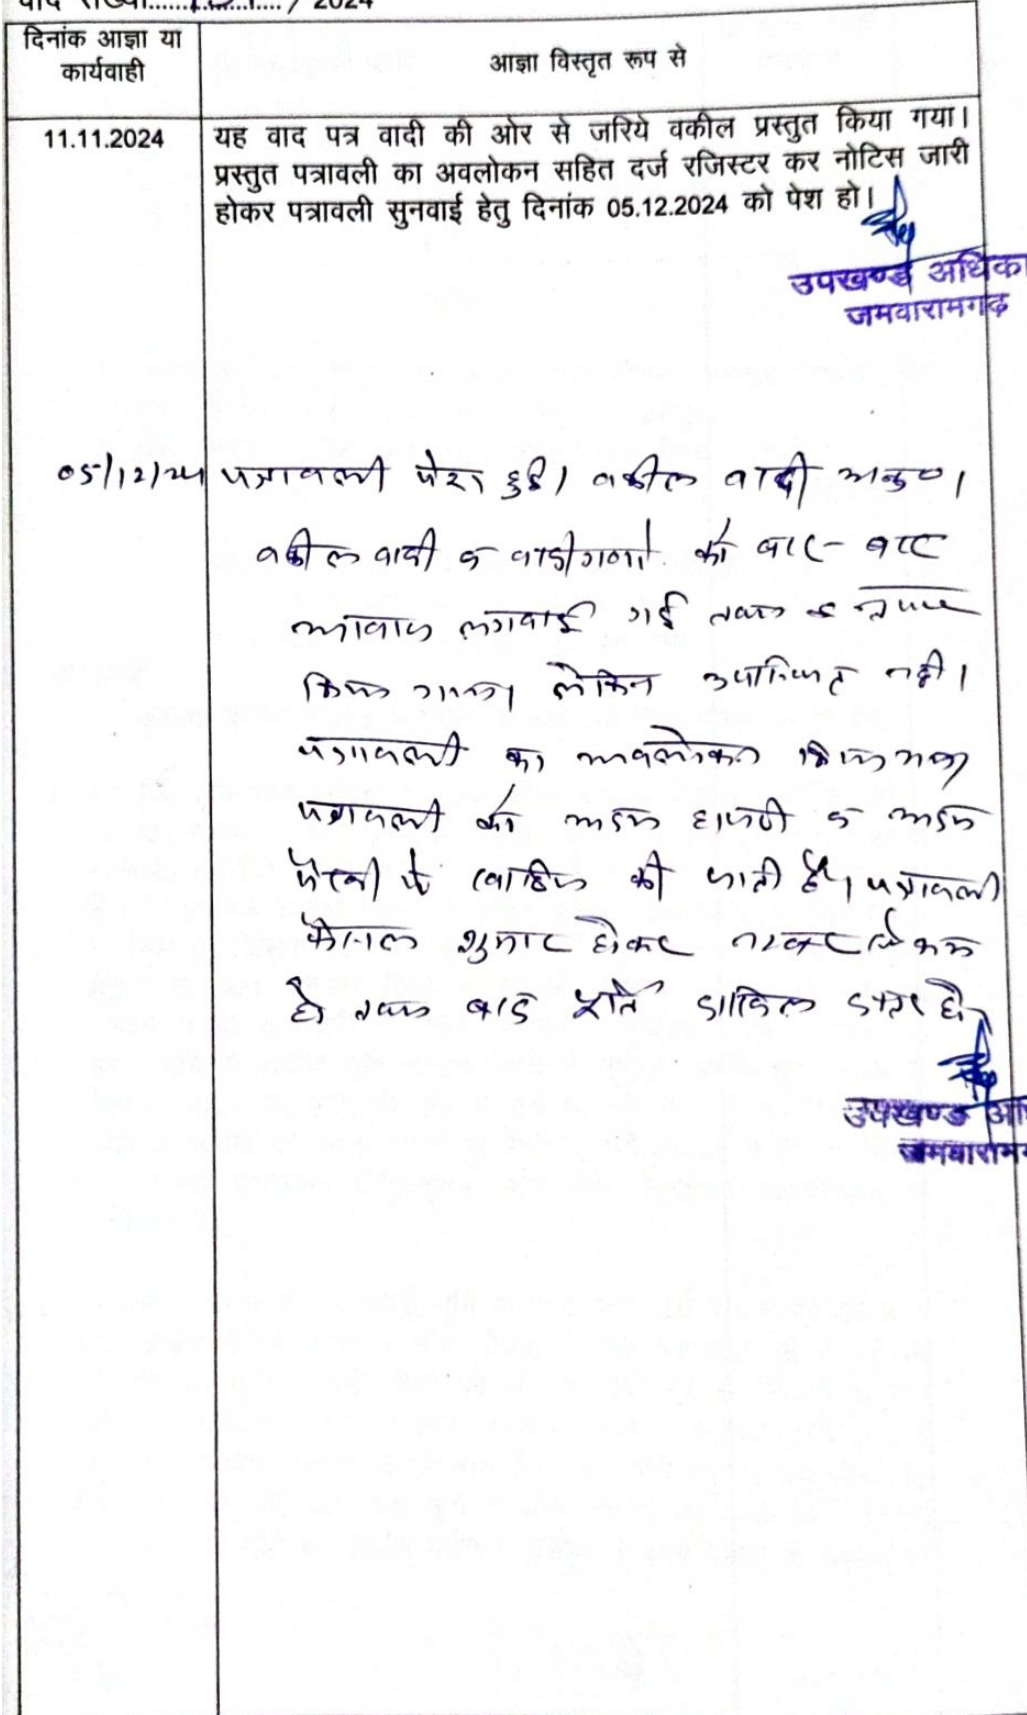 वाद संख्या / 2024
दिनांक आज्ञा या
कार्यवाही
आज्ञा विस्तृत रूप से
11.11.2024
यह वाद पत्र वादी की ओर से जरिये वकील प्रस्तुत किया गया।
प्रस्तुत पत्रावली का अवलोकन सहित दर्ज रजिस्टर कर नोटिस जारी
होकर पत्रावली सुनवाई हेतु दिनांक 05.12.2024 को पेश हो।
उपखण्ड अधिका
जमवारामगढ़
05/12/24 पत्रावली पेश हुई। वकील वादी अनुप०।
वकील वादी व वादीगणों को बार-बार
आवाज लगवाई गई तथा
किया गया। लेकिन उपस्थित नहीं।
पत्रावली का अवलोकन किया गया
पत्रावली को अदम हाजरी व अदम
पैरवी में खारिज की जाती है। पत्रावली
फैसल शुमार होकर नम्बर से कम
हो तथा बाद दाखिल दफ्तर हो
उपखण्ड अधि
जमवारामग